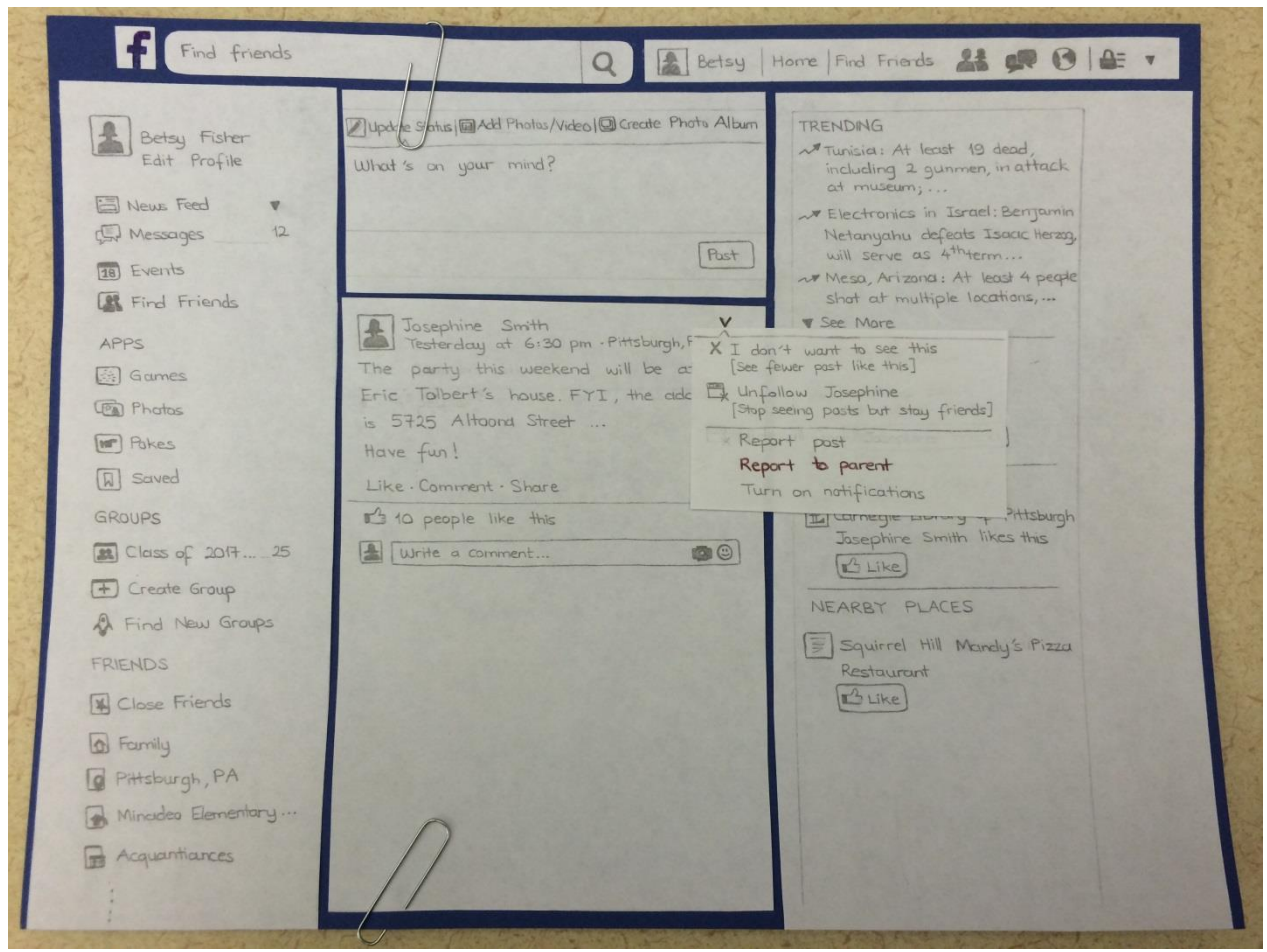 f Find friends
Betsy | Home | Find Friends
Betsy Fisher
Edit Profile
News Feed
Messages 12
18 Events
Find Friends
APPS
Games
Photos
Pokes
Saved
GROUPS
Class of 2017... 25
Create Group
Find New Groups
FRIENDS
Close Friends
Family
Pittsburgh, PA
Minadeo Elementary...
Acquantiances
Update Status | Add Photos/Video | Create Photo Album
What's on your mind?
Post
Josephine Smith
Yesterday at 6:30 pm · Pittsburgh, P
The party this weekend will be a
Eric Tolbert's house. FYI, the add
is 5725 Altoona Street ...
Have fun!
Like · Comment · Share
10 people like this
Write a comment...
X I don't want to see this
[See fewer post like this]
Unfollow Josephine
[Stop seeing posts but stay friends]
Report post
Report to parent
Turn on notifications
TRENDING
Tunisia: At least 19 dead,
including 2 gunmen, in attack
at museum; ...
Electronics in Israel: Benjamin
Netanyahu defeats Isaac Herzog,
will serve as 4th term...
Mesa, Arizona: At least 4 people
shot at multiple locations, ...
See More
Carnegie Library of Pittsburgh
Josephine Smith likes this
Like
NEARBY PLACES
Squirrel Hill Mandy's Pizza
Restaurant
Like